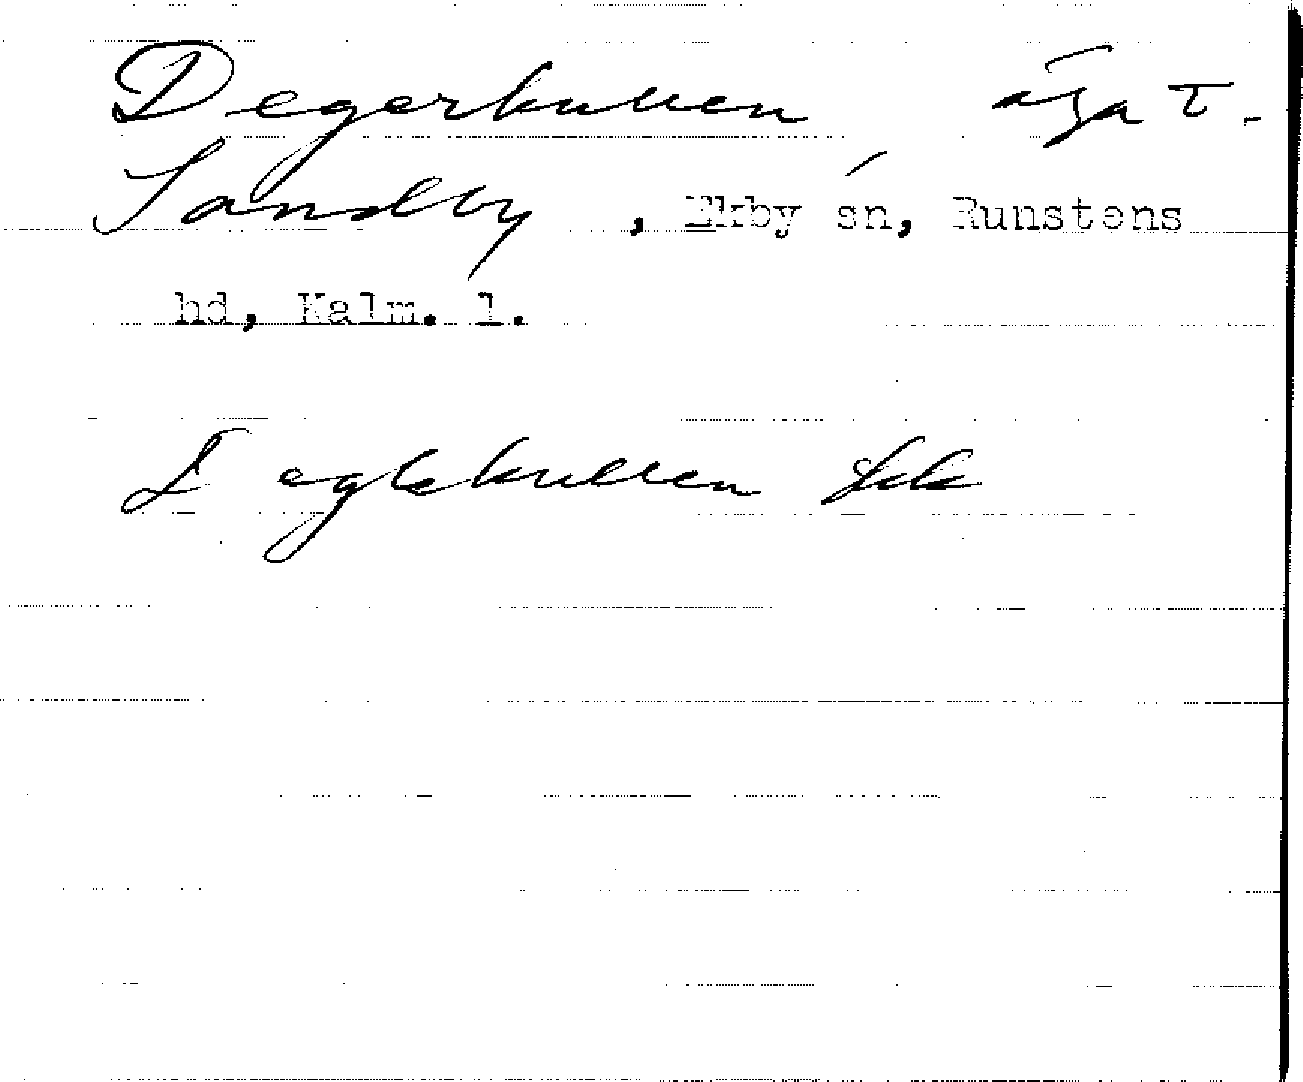 Degerkullen äga t.
Sandby, Ekby sn, Runstens
hd, Kalm. l.
Degle kullen